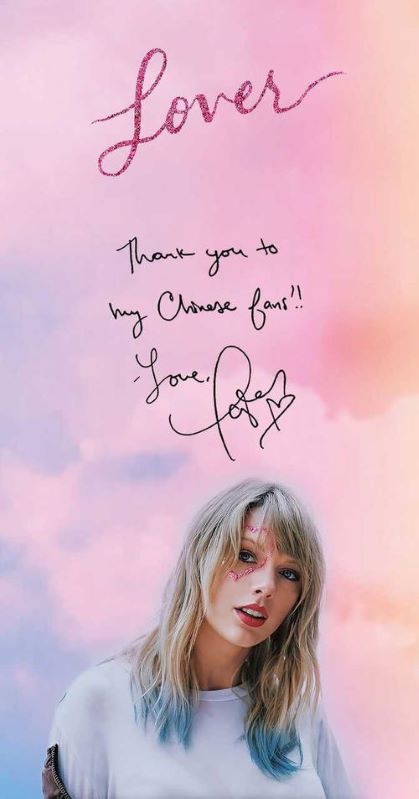 Lover
Thank you to
my Chinese fans!!
-Love,